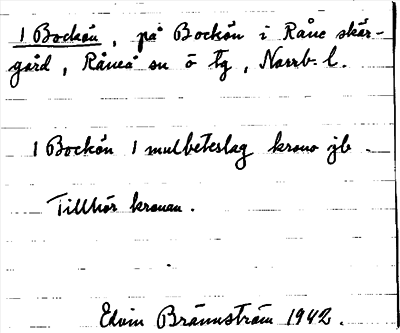 1 Bockön, på Bockön i Råne skär-
gård, Råneå sn ö tg, Norrb. l.
1 Bockön 1 mulbeteslag krono jb.
Tillhör kronan.
Edvin Brännström 1942.